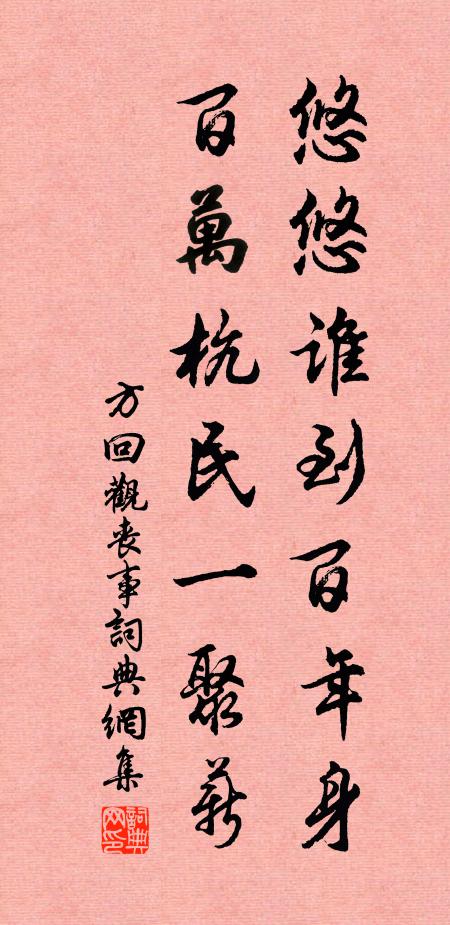 悠悠誰到百年身
百萬杭民一聚薪
方回觀喪事詞典網集
詞典网印